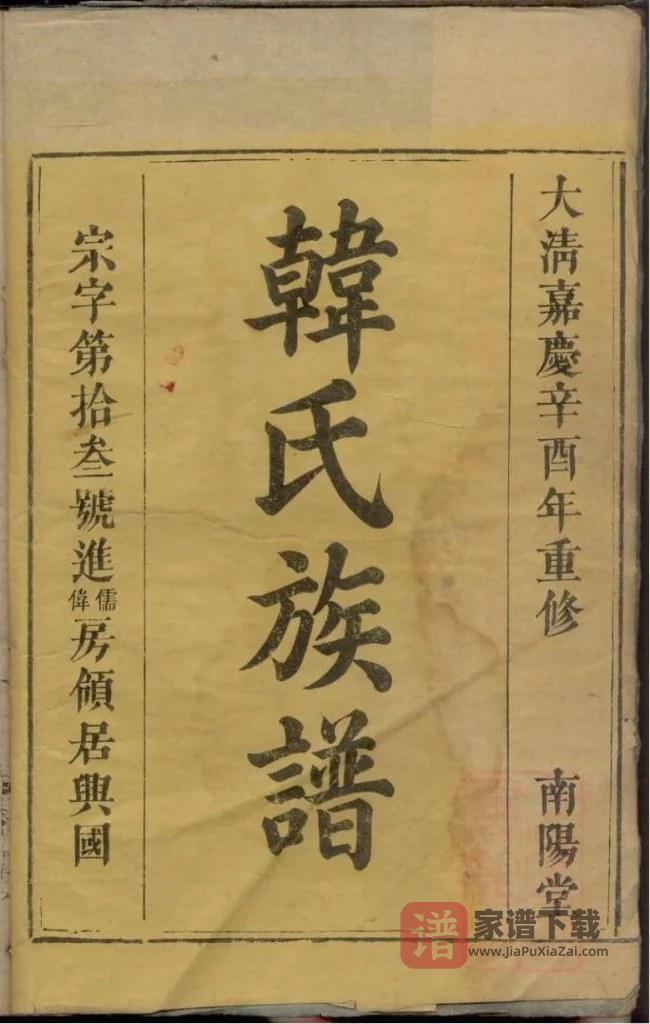 大清嘉慶辛酉年重修
南陽堂
韓氏族譜
宗字第拾叁號進儒偉房領居興國
谱 家谱下载
www.JiaPuXiaZai.com